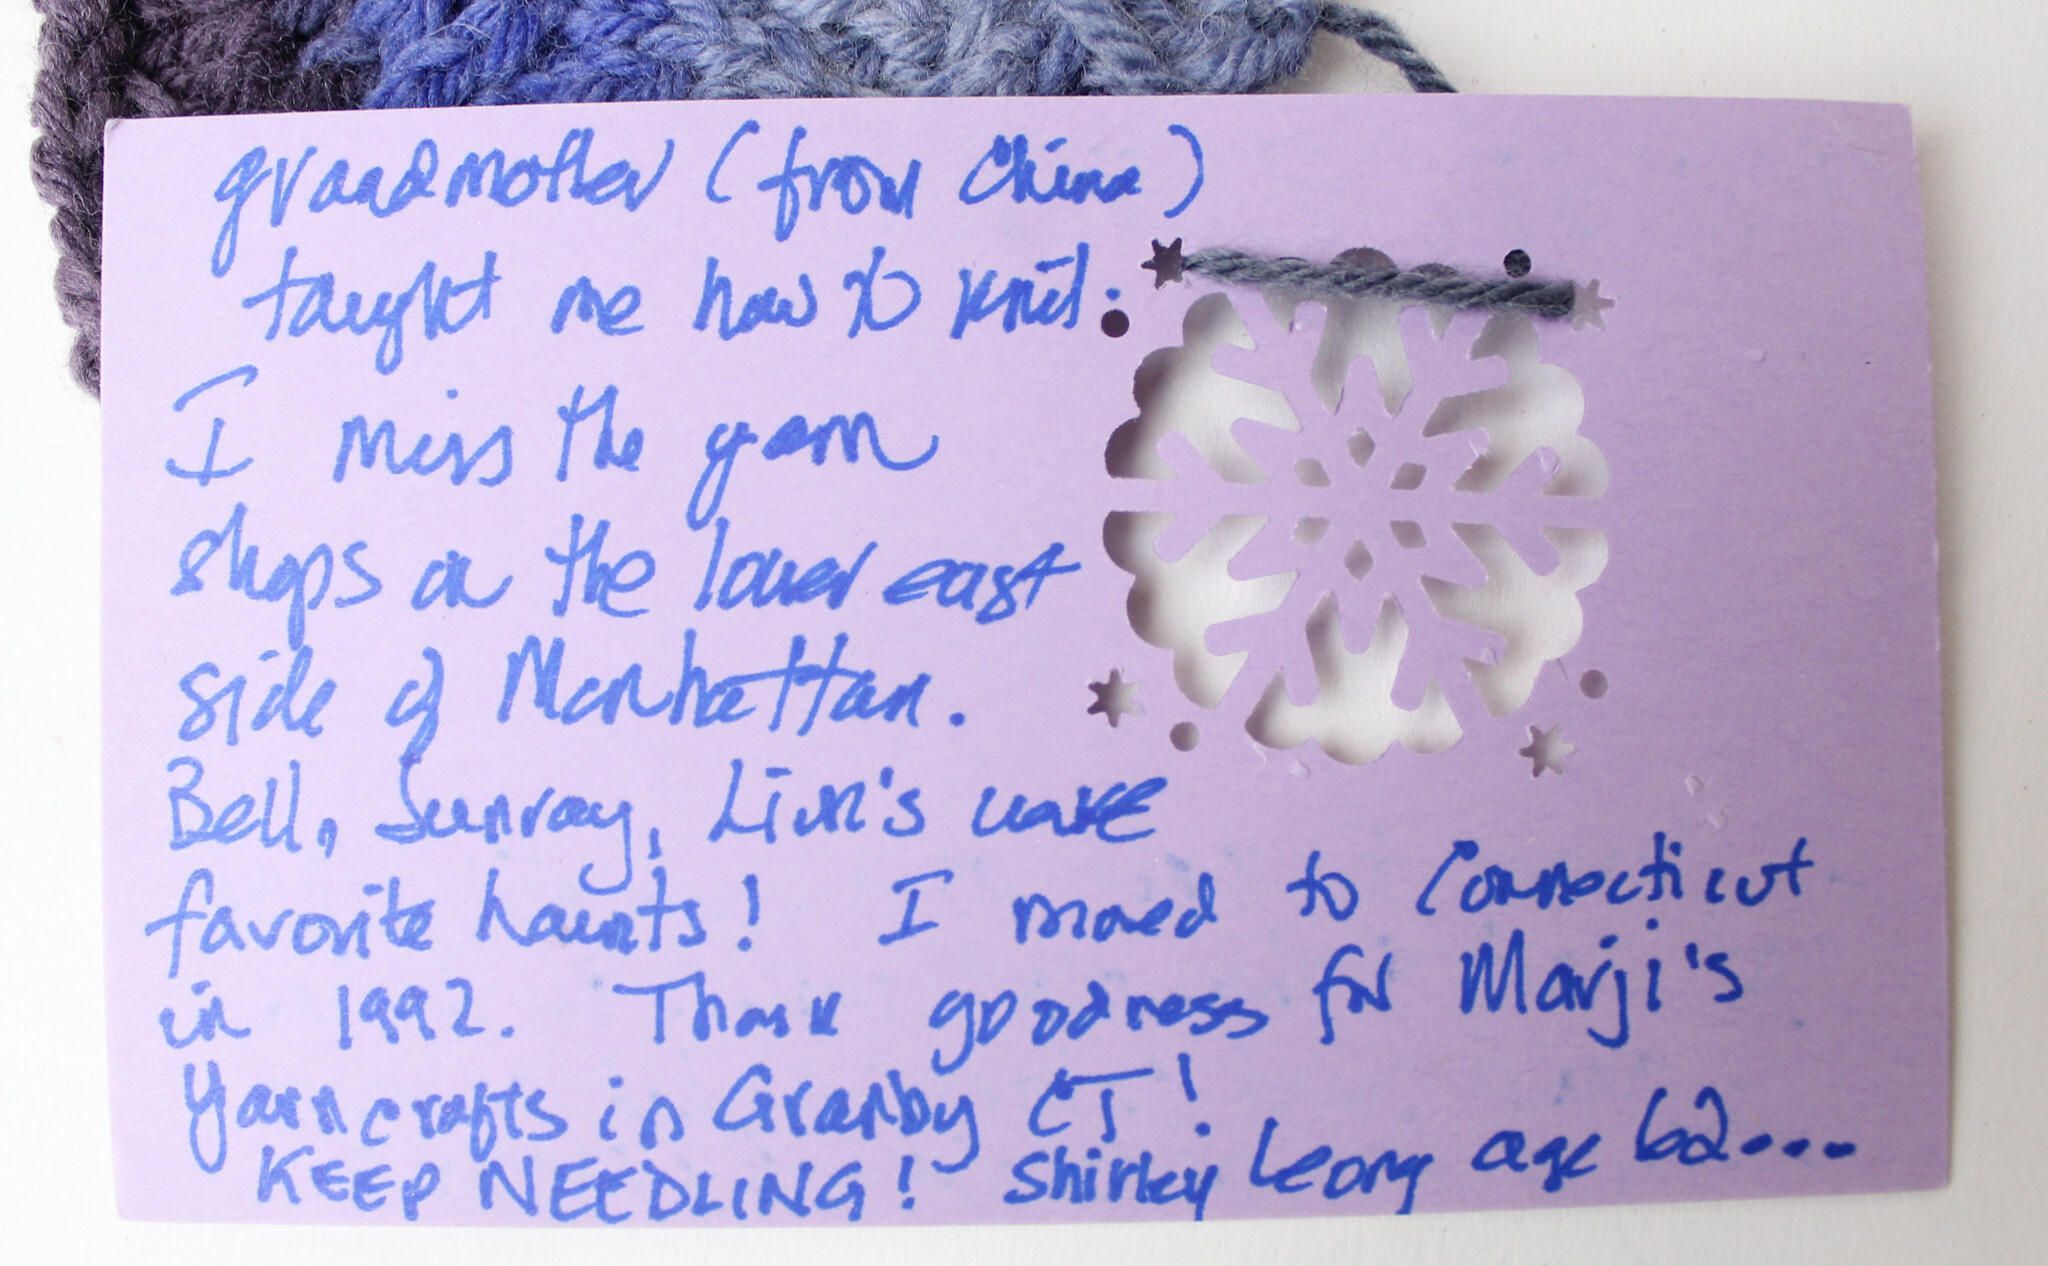 grandmother (from China)
taught me how to knit.
I miss the yarn
shops on the lower east
side of Manhattan.
Bell, Sunray, Lion's were
favorite haunts! I moved to Connecticut
in 1992. Thank goodness for Marji's
Yarncrafts in Granby CT!
KEEP NEEDLING! Shirley Leong age 62...